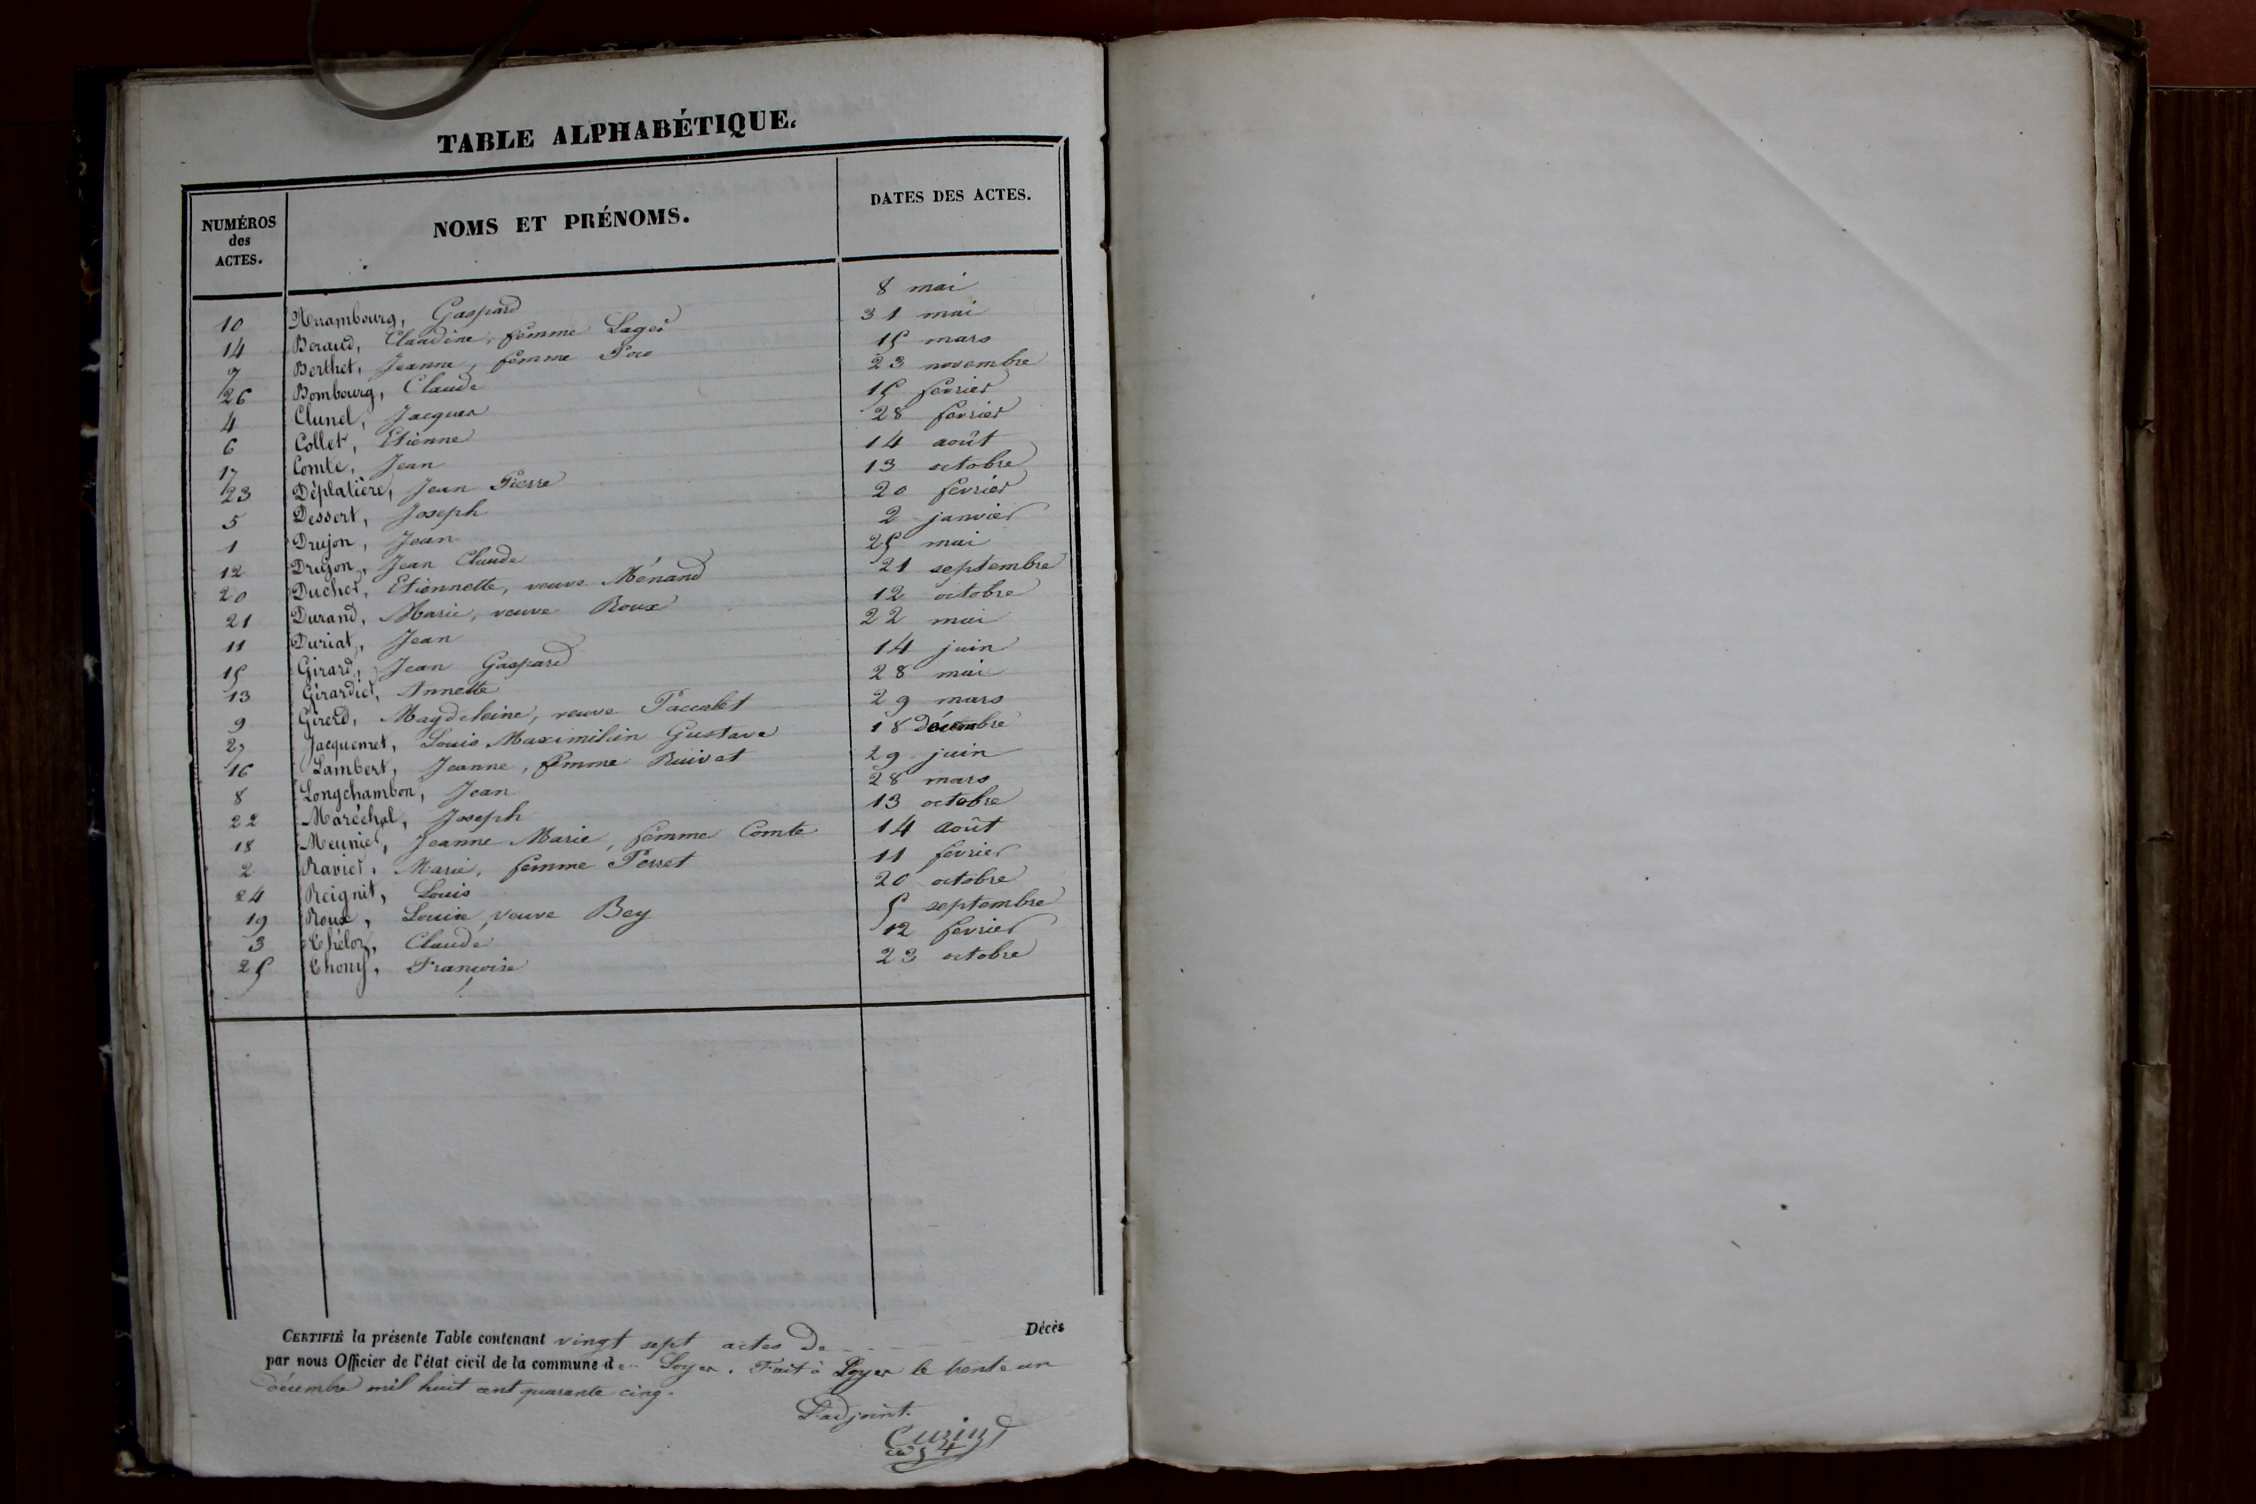 TABLE ALPHABÉTIQUE.
NUMÉROS des ACTES. NOMS ET PRÉNOMS. DATES DES ACTES.
10 Gaspard 8 mai
14 Beraud, Claudine, femme Lager 31 mai
7 Berthet, Jeanne, femme 15 mars
26 Bombourg, Claude 23 novembre
4 Clunel, Jacques 15 fevrier
6 Collet, Etienne 28 fevrier
17 Comte, Jean 14 août
23 Déplatière, Jean Pierre 13 octobre
5 Dessert, Joseph 20 fevrier
1 Drujon, Jean 2 janvier
12 Drujon, Jean Claude 25 mai
20 Ducher, Etiennette, veuve Ménand 21 septembre
21 Durand, Marie, veuve Roux 12 octobre
11 Duriat, Jean 22 mai
15 Girard, Jean Gaspard 14 juin
13 Girardier, Annette 28 mai
9 Girerd, Magdeleine, veuve Paccalet 29 mars
27 Jacquemet, Louis Maximilien Gustave 18 décembre
16 Lambert, Jeanne, femme Ruivet 29 juin
8 Longchambon, Jean 28 mars
22 Maréchal, Joseph 13 octobre
18 Meunier, Jeanne Marie, femme Comte 14 août
2 Ravier, Marie, femme Perret 11 fevrier
24 Reignit, Louis 20 octobre
19 Roux, Louise, veuve Bey 5 septembre
3 Théloz, Claude 12 fevrier
25 Thony, Françoise 23 octobre
CERTIFIÉ la présente Table contenant vingt sept actes de Décès
par nous Officier de l'état civil de la commune de Loyes. Fait à Loyes le trente un
décembre mil huit cent quarante cinq.
L'adjoint.